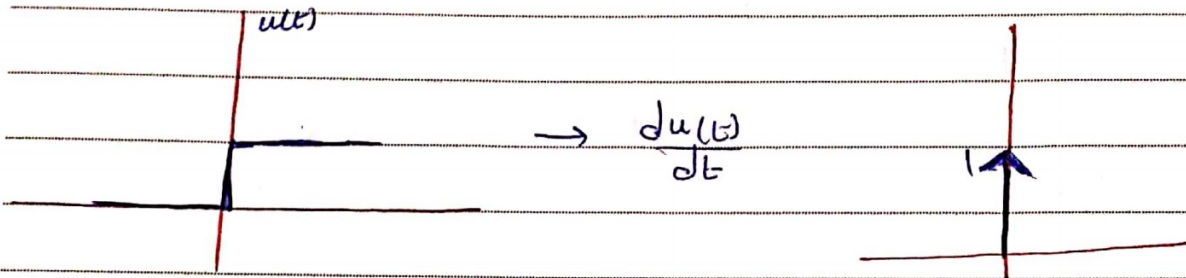 u(t)
→ du(t)
dt
1